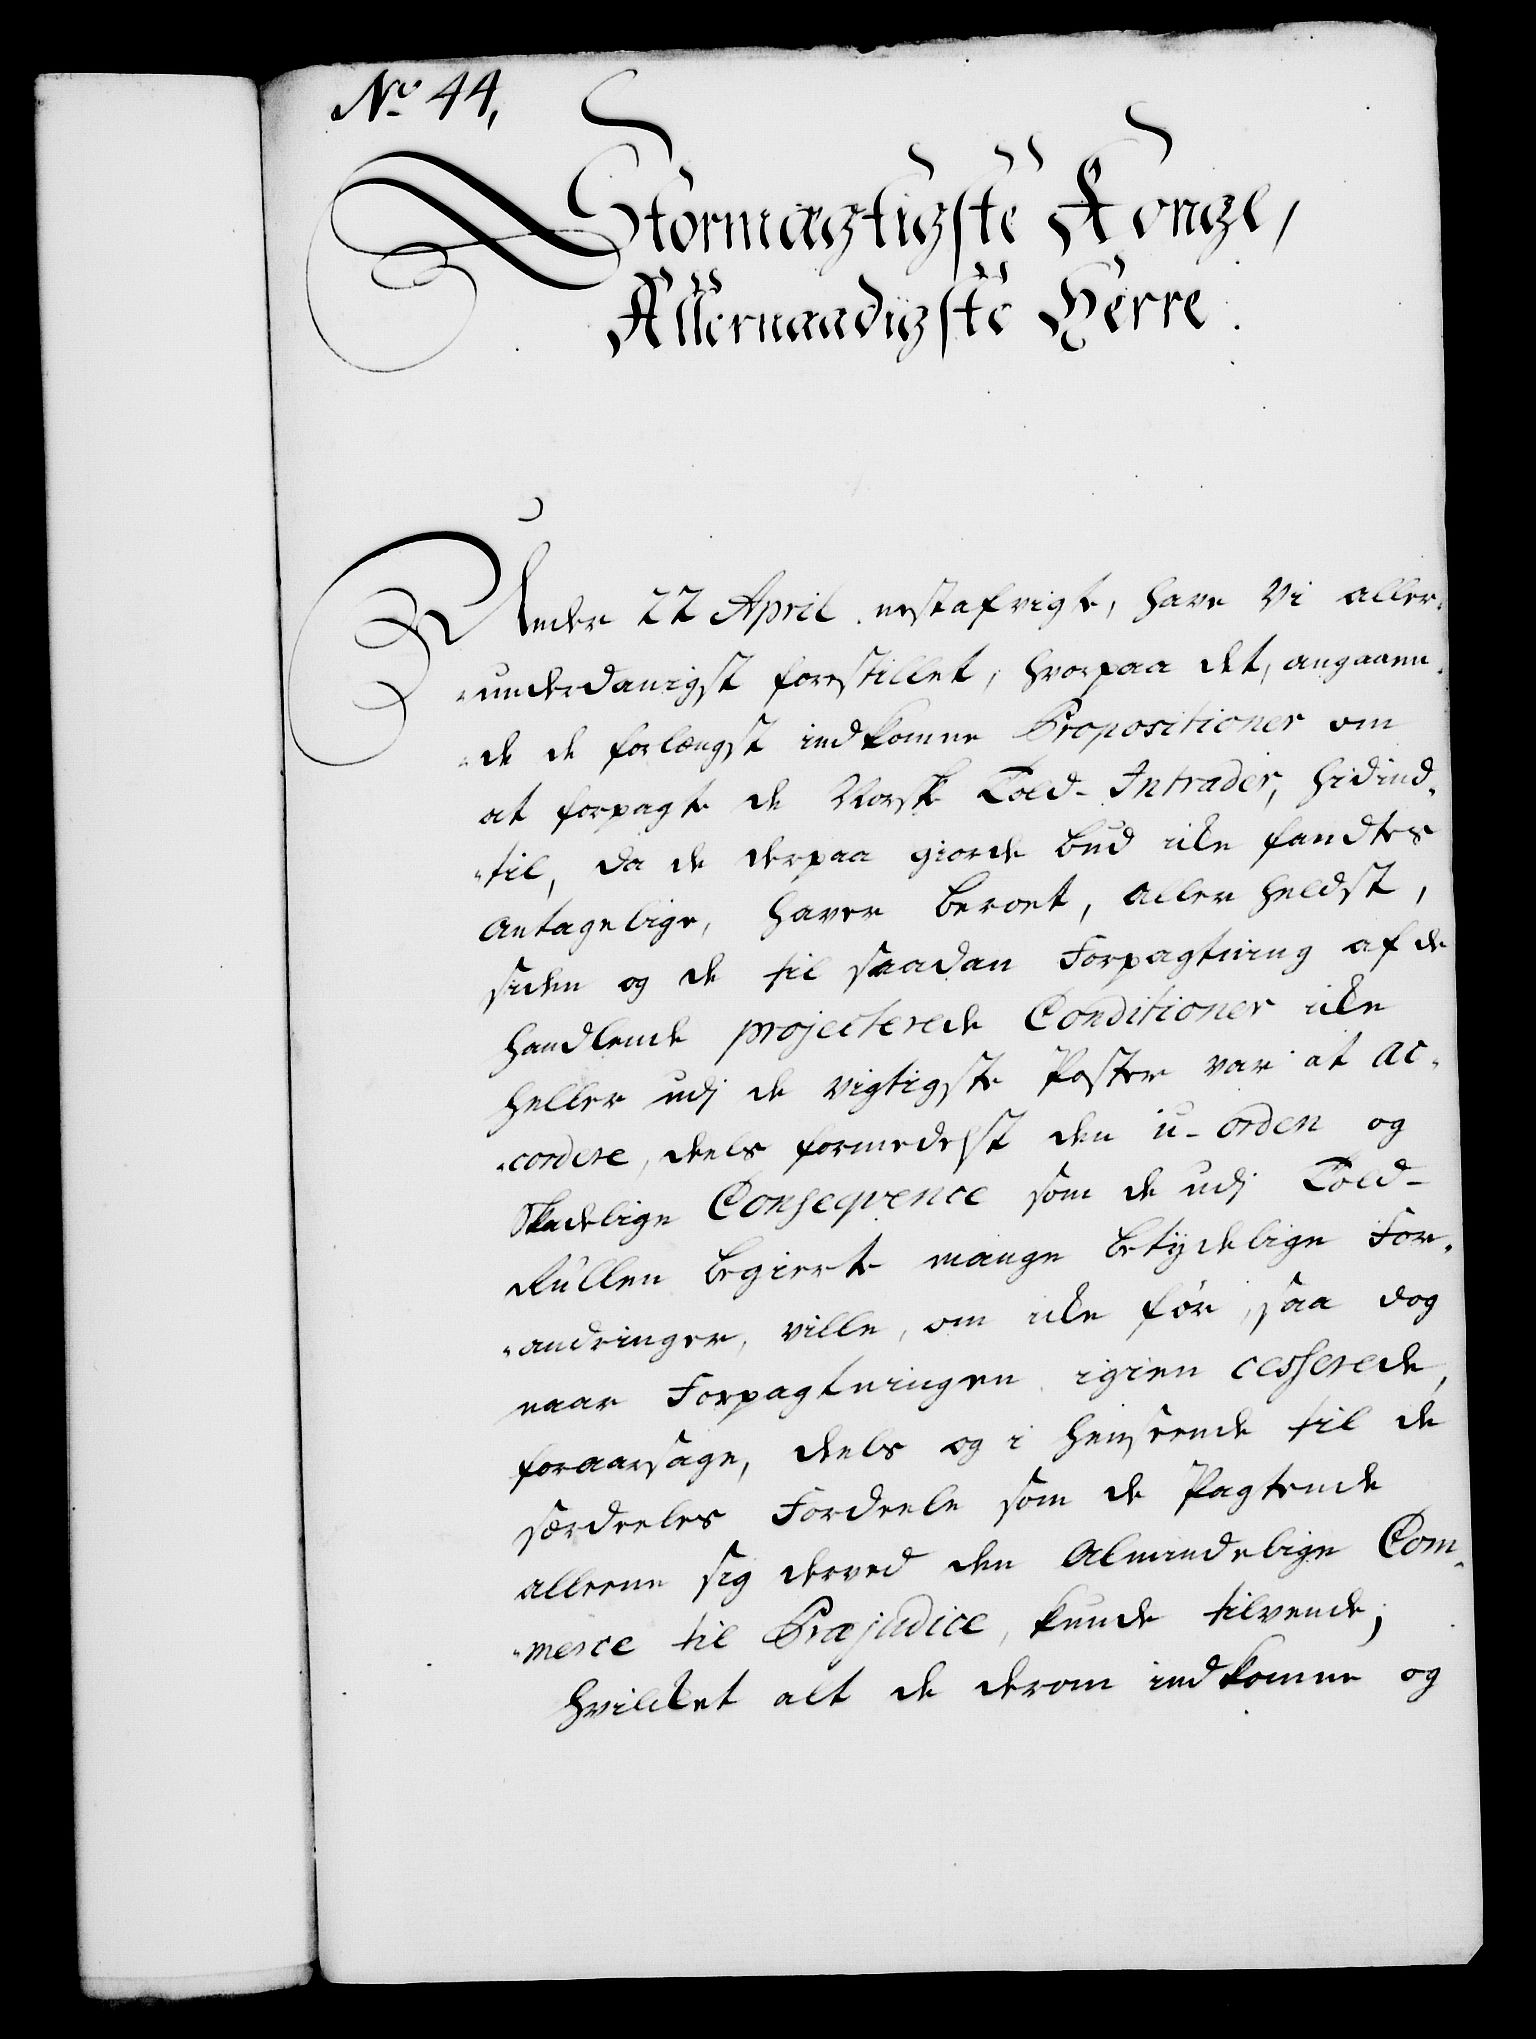 No 44,
Stormægtigste Konge,
Allernaadigste Herre.
Under 22 April nestafvigte, have Vi aller-
-underdanigst forestillet, hvorpaa det, angaaen-
-de de forlængst indkomne Propositioner om
at forpagte de Norske Told-Intrader, hidind-
-til, da de derpaa giorde bud icke fandtes
antagelige, haver beroet, allerheldst,
siden og de til saadan Forpagtning af de
handlende projecterede Conditioner icke
heller udj de vigtigste Poster var at ac-
-cordere, deels formedelst den u-orden og
Skadelige Conseqvence som de udj Told-
Rullen begierte mange betydelige For-
-andringer, ville, om icke før, saa dog
naar Forpagtningen igien cesserede,
foraarsage, deels og i henseende til de
særdeeles Fordeele som de Pagtende
alleene sig derved den Almindelige Com-
-merce til Præjudice, kunde tilvende;
hvilcket alt de derom indkomne og